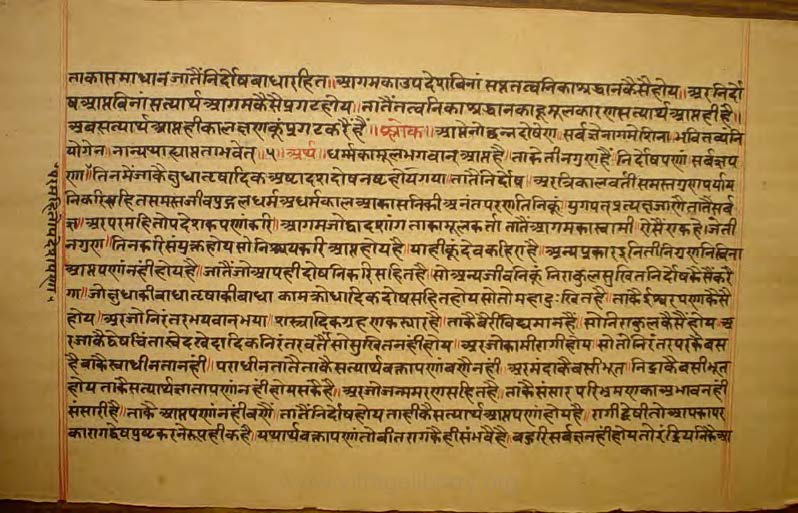 ताकासमाधान जातैंनिर्दोषबाधारहित॥आगमकाउपदेशबिनां सप्ततत्वनिकाश्रद्धानकैसैहोय॥अरनिर्दो
षआप्तबिनांसत्यार्थआगमकैसैप्रगटहोय॥तातैंतत्वनिकाश्रद्धानकाहूमूलकारणसत्यार्थआप्तहीहै॥
अबसत्यार्थआप्तहीकालक्षणकूंप्रगटकरैंहैं॥श्लोक॥आप्तेनोछिन्नदोषेण॥सर्वज्ञेनागमेशिना॥भवितव्यंनि
योगेन॥नान्यथाह्याप्तताभवेत्॥५॥अर्थ॥धर्म्मकामूलभगवान्आप्तहै॥ताकेतीनगुणहैं॥निर्दोषपणा॥सर्वज्ञप
णा॥तिनमेंजाकैक्षुधातृषादिकअष्टादशदोषनष्टहोयगया॥तातैंनिर्दोष॥अरत्रिकालवर्तीसमस्तगुणपर्याय
निकरिसहितसमस्तजीवपुद्गलधर्मअधर्मकालआकासनिकी अनंतपरणतितिनिकूं॥युगपत्प्रत्यक्षजाणैतातैंसर्व
ज्ञ॥अरपरमहितोपदेशकपणांकरी॥आगमजोद्वादशांगताकामूलकर्ता॥तातैंआगमकास्वामी॥ऐसैंएकहे॥जेती
नगुण॥तिनकरिसंयुक्तहोयसोनिश्चयकरीआप्तहोयहै॥याहीकूंदेवकहिएहै॥अन्यप्रकारइनितीनिगुणनिबिना
आप्तपणांनंहींहोयहै॥जातैंजोआपहीदोषनिकरिसहितहै॥सोअन्यजीवनिकूं निराकुलसुखितनिर्दोषकैसैंकरै
गा॥जोक्षुधाकीबाधातृषाकीबाधा कामक्रोधादिकदोषसहितहोयसोतोमहादुःखितहै॥ताकैईश्वरपणाकैसै
होय॥अरजोनिरंतरभयवानभया॥शस्त्रादिकग्रहणकरयारहै॥ताकैबैरीविद्यमानहैं॥सोनिराकुलकैसैंहोय अ
रजाकैद्वेषचिंतास्वेदखेदादिकनिरंतरवर्तैसोसुखितनहींहोय॥अरजोकामीरागीहोय॥सोतोनिरंतरपरकैबस
हैबाकैस्वाधीनतानंहीं॥पराधीनतातैताकैसत्यार्थबक्तापणांबणैनंहीं॥अरमंदाकैबसीभूत॥निद्राकैबसीभूत
होय ताकैसत्यार्थज्ञातापणांनंहींहोयसकैहै॥अरजोजन्ममरणसहितहै॥ताकैसंसार परिभ्रमणकाअभावनंहीं
संसारीहै॥ताकै आप्तपणांनंहींबणैं॥तातैंनिर्दोषहोयताहीकैसत्यार्थआप्तपणांहोयहै॥रागीद्वेषीतोआपकापर
कारागद्वेषपुष्टकरनेरूपहीकहै॥यथार्थवक्तापणांतोबीतरागकैहीसंभवैहै॥बहुरिसर्वज्ञनहींहोयतोइंद्रियनिकैआ